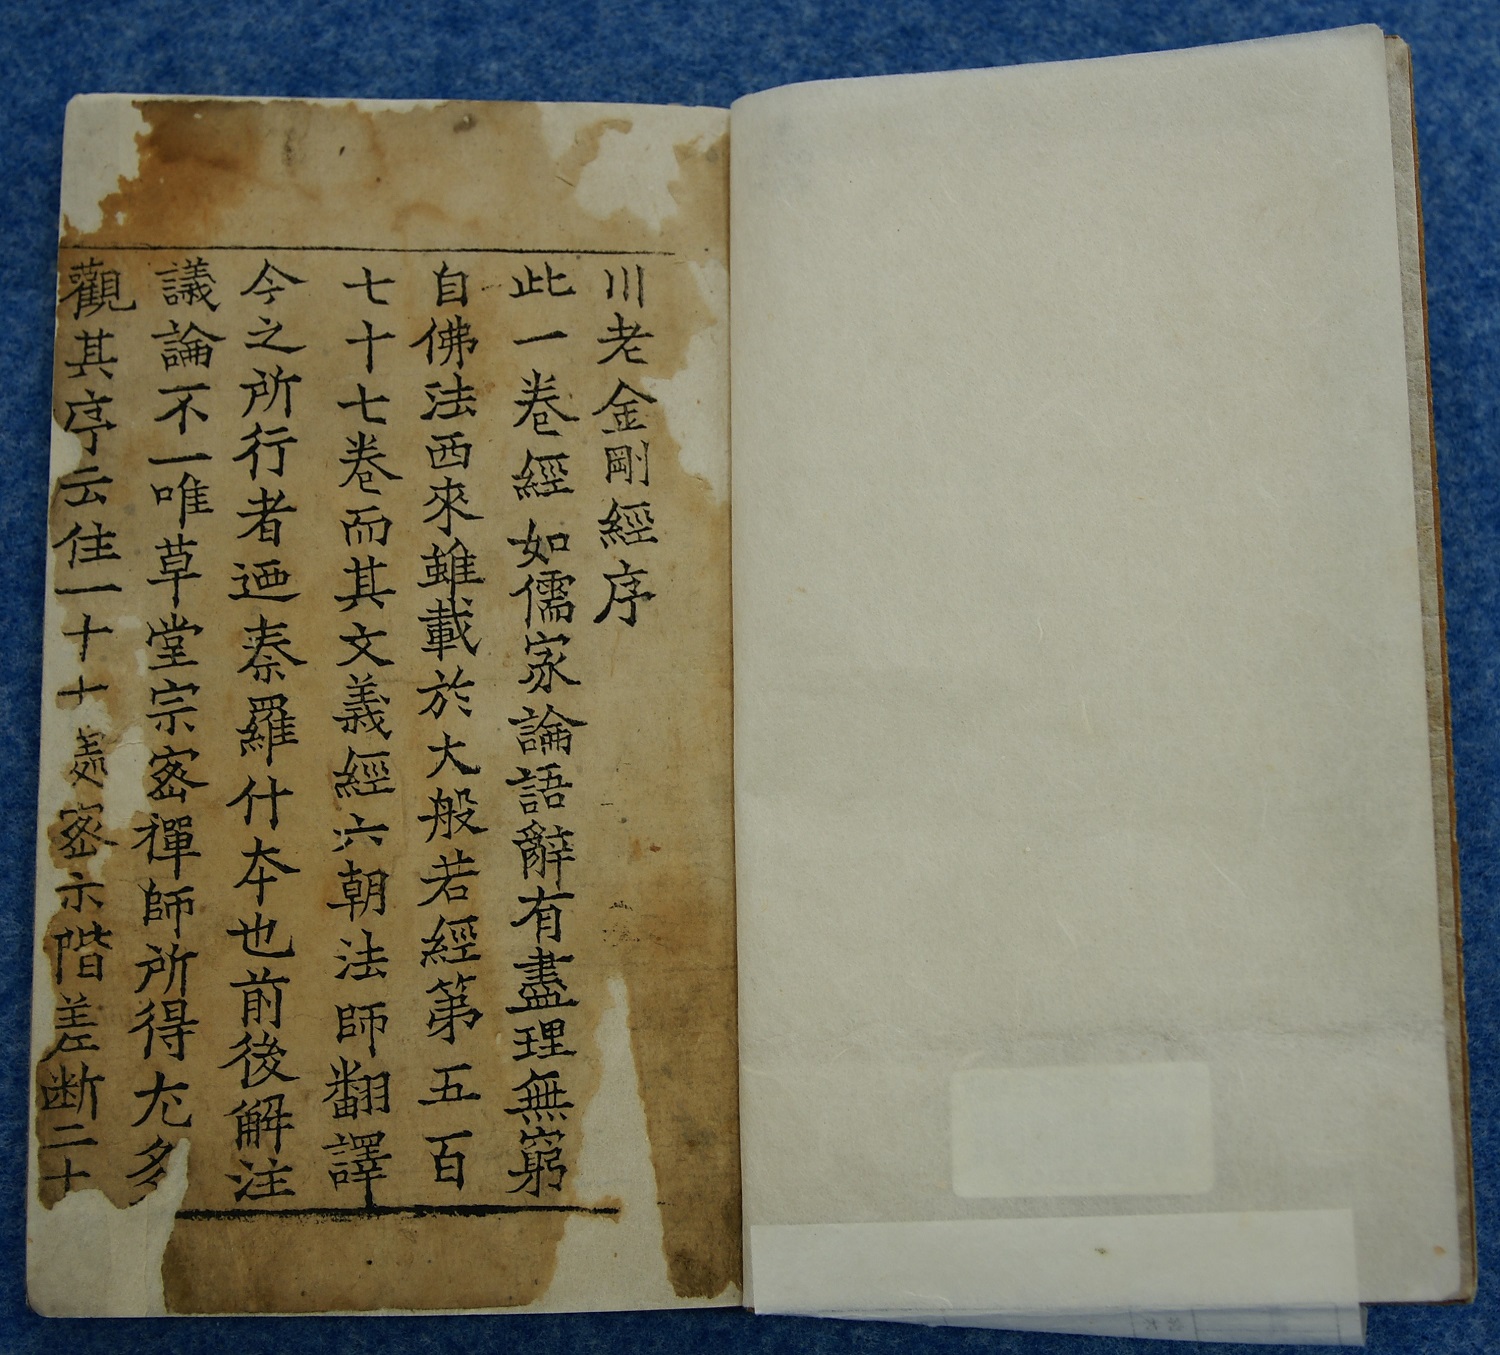 川老金剛經序
此一卷經如儒家論語辭有盡理無窮
自佛法西來雖載於大般若經第五百
七十七卷而其文義經六朝法師翻譯
今之所行者迺秦羅什本也前後解注
議論不一唯草堂宗宻禪師所得尤多
觀其序云住一十十處宻示階差断二十